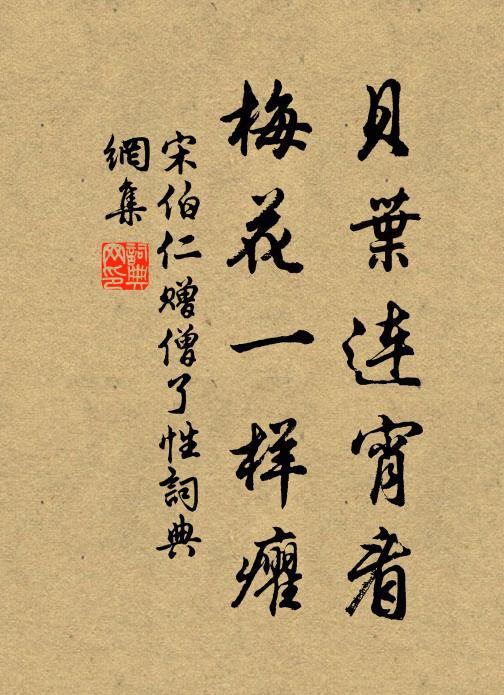 貝葉連宵看
梅花一样癯
宋伯仁赠僧了性詞典
網集
詞典网印